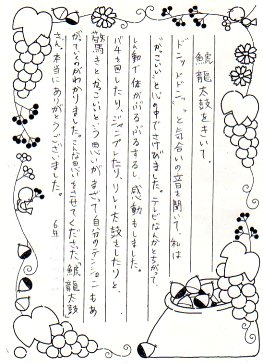 鯱龍太鼓をきいて、
ドンッドドンッと気合いの音を聞いて、私は
「かっこいい」と心の中でさけびました。テレビなんかとちがって、
しん動で体がぶるぶるするし、感動もしました。
バチを回したり、ジャンプしたり、リレー太鼓をしたりと、
驚きとかっこいいという思いがまざって自分のテンションもあ
がていくのがわかりました。こんな思いをさせてくださた、鯱龍太鼓
さん、本当にありがとうございました。
6年